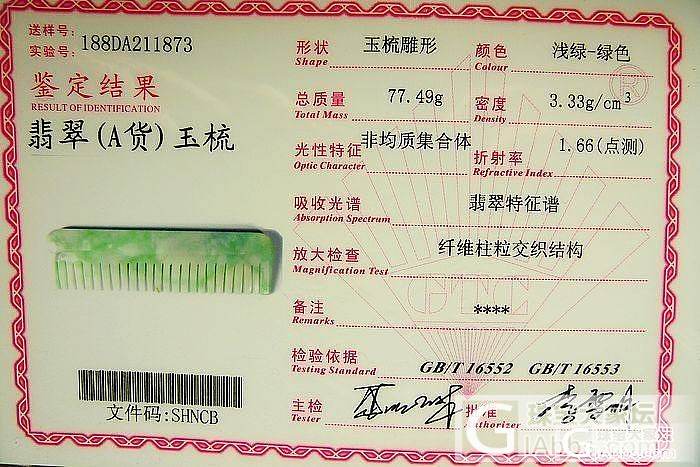 送样号:
实验号: 188DA211873
鉴定结果
RESULT OF IDENTIFICATION
翡翠(A货)玉梳
文件码:SHNCB
形状 玉梳雕形 颜色 浅绿-绿色
Shape Colour
总质量 77.49g 密度 3.33g/cm³
Total Mass Density
光性特征 非均质集合体 折射率 1.66(点测)
Optic Character Refractive Index
吸收光谱 翡翠特征谱
Absorption Spectrum
放大检查 纤维柱粒交织结构
Magnification Test
备注 ****
Remarks
检验依据 GB/T 16552 GB/T 16553
Testing Standard
主检 批准
Tester Authorizer
GTC
®